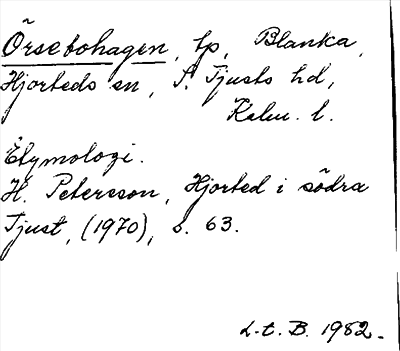 Örsebohagen, tp, Blanka,
Hjorteds sn, S. Tjusts hd,
Kalm. l.
Etymologi.
H. Petersson, Hjorted i södra
Tjust, (1970), s. 63.
L.t. B. 1982.